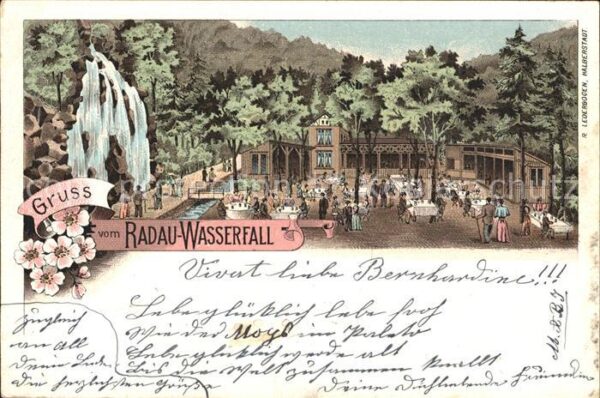 Gruss
vom RADAU-WASSERFALL
R. LEDERBOGEN, HALBERSTADT.
Vivat liebe Bernhardine!!!
Lebe glücklich lebe froh
Wie der Mops im Paleto
Lebe glücklich werde alt
bis die Welt zusammen knallt
Deine Dichlebende Freundin
Zugleich
an all
Deine Liebe
die herzlichsten Grüße